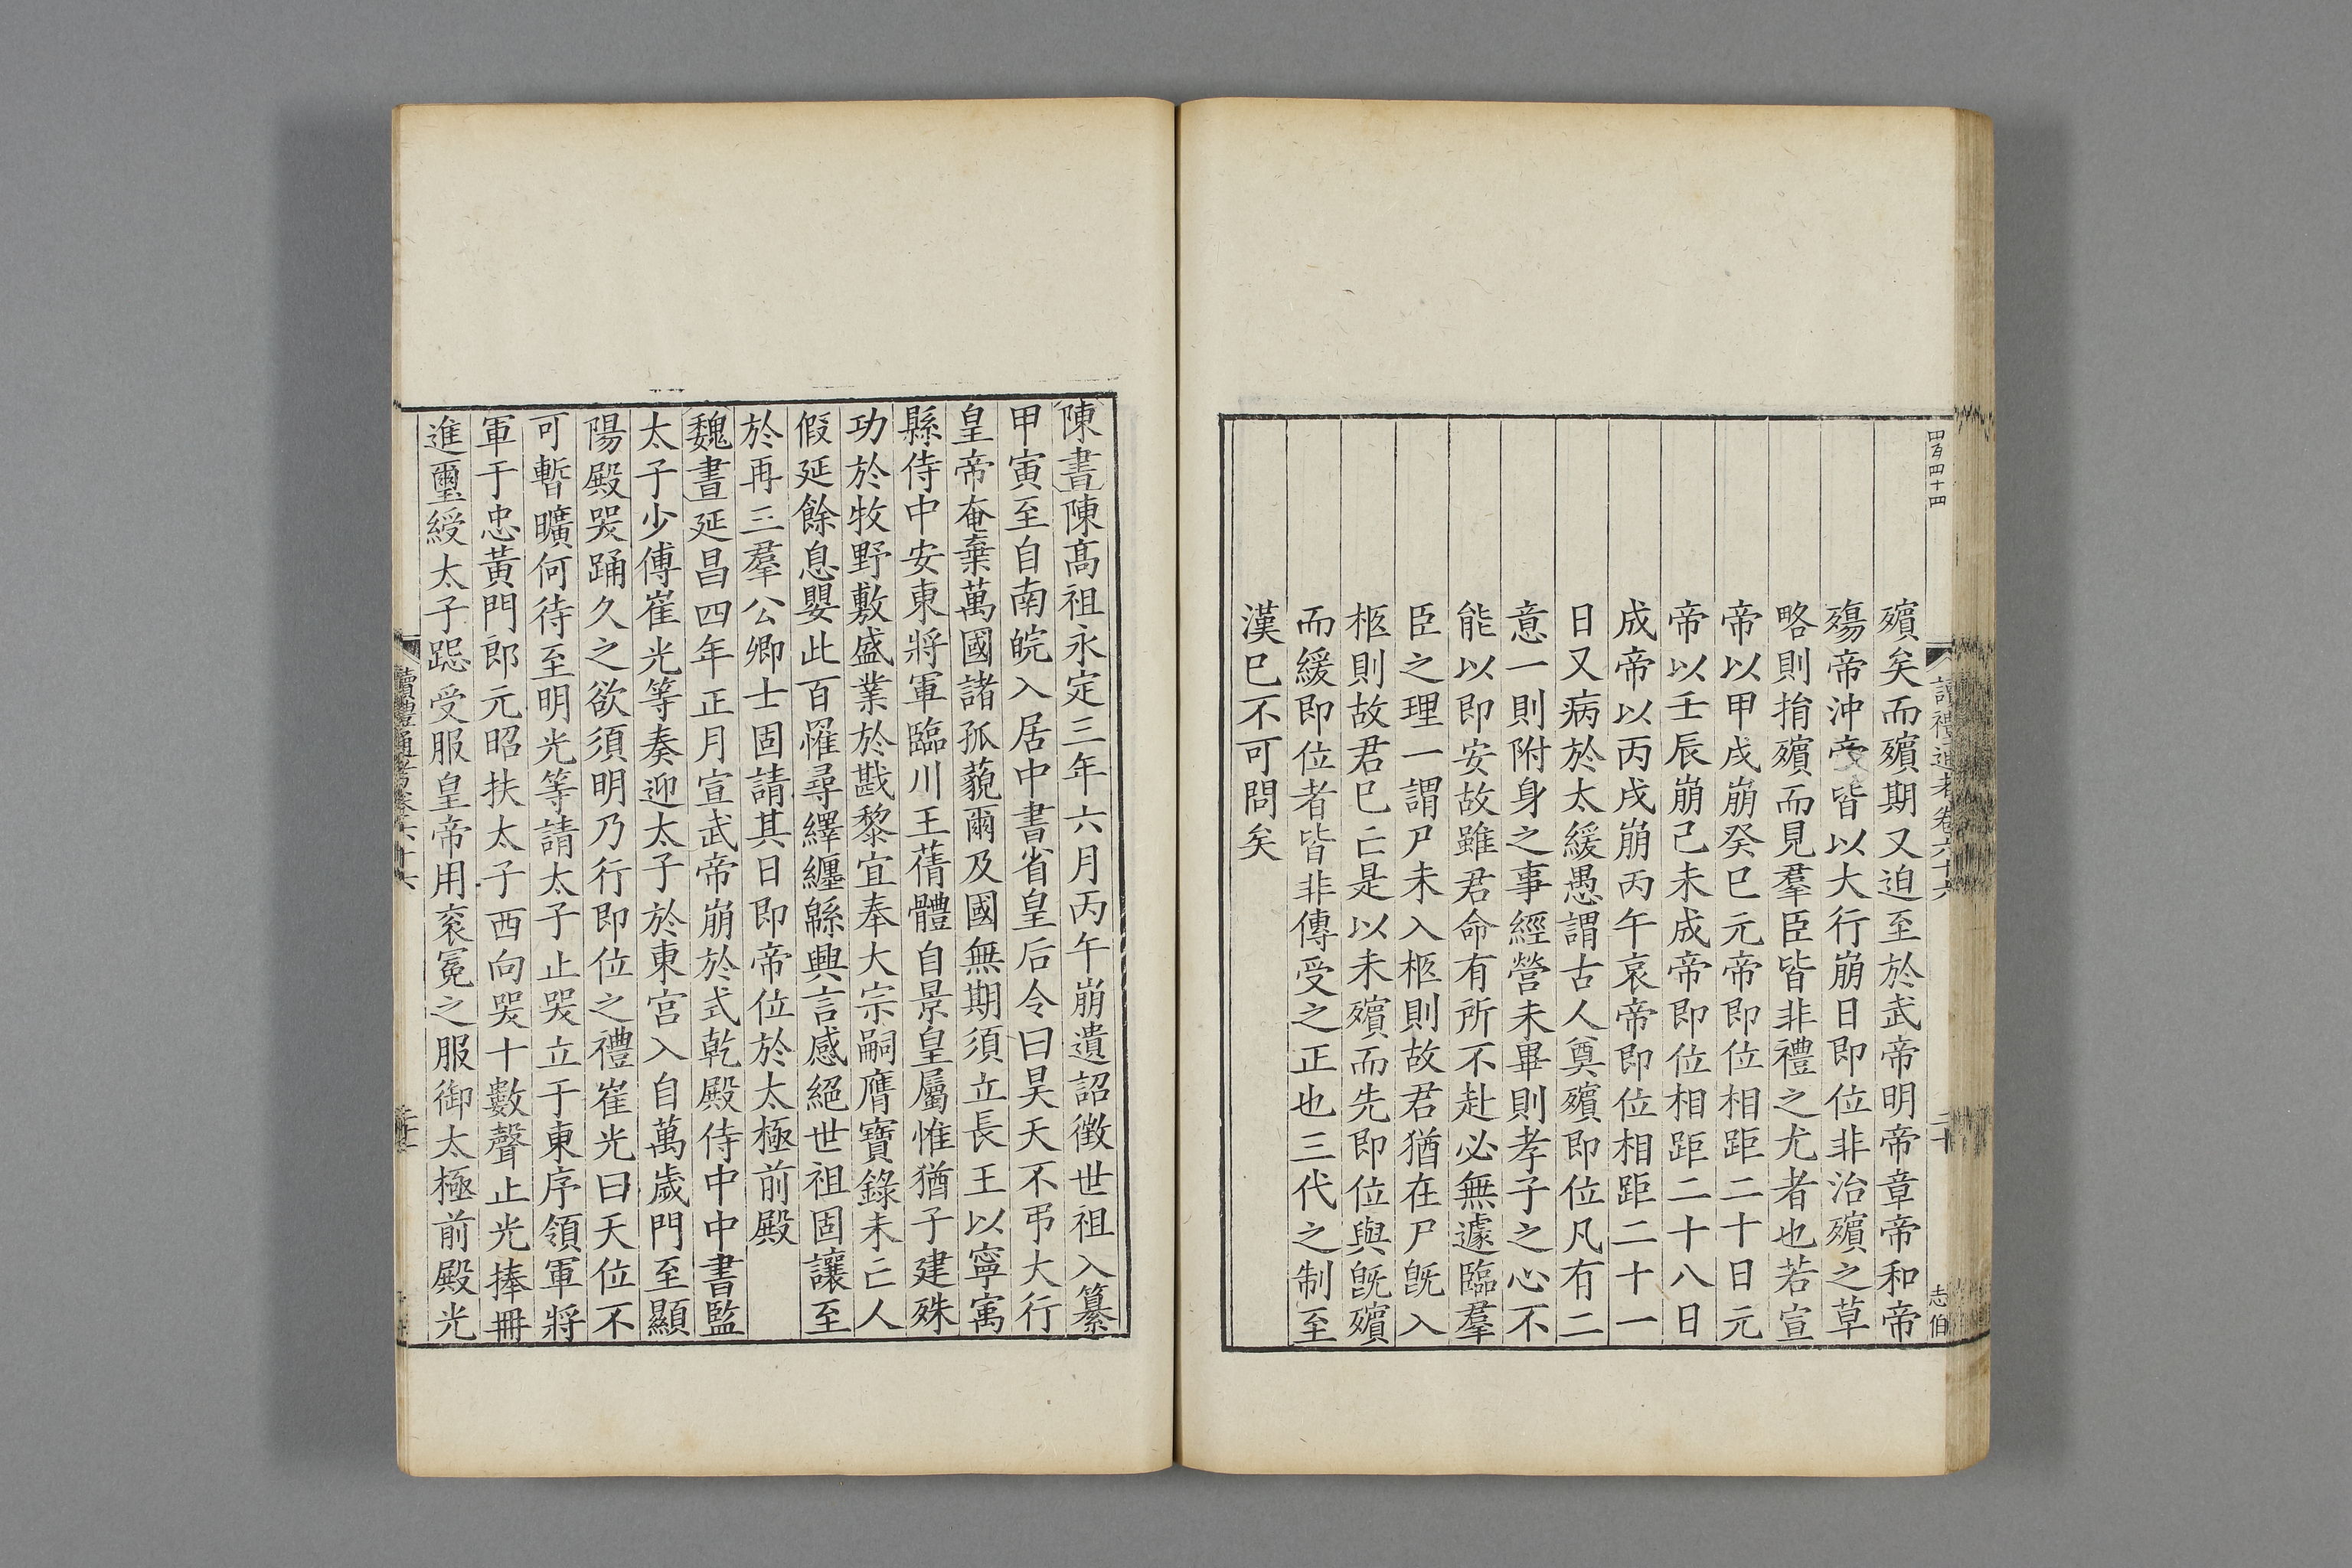 四百四十四
讀禮通考卷六十六
二十
志伯
殯矣而殯期又迫至於武帝明帝章帝和帝
殤帝沖帝皆以大行崩日即位非治殯之草
略則捐殯而見羣臣皆非禮之尤者也若宣
帝以甲戌崩癸巳元帝即位相距二十日元
帝以壬辰崩己未成帝即位相距二十八日
成帝以丙戌崩丙午哀帝即位相距二十一
日又病於太緩愚謂古人奠殯即位凡有二
意一則附身之事經營未畢則孝子之心不
能以即安故雖君命有所不赴必無遽臨羣
臣之理一謂尸未入柩則故君猶在尸旣入
柩則故君已亡是以未殯而先即位與旣殯
而緩即位者皆非傳受之正也三代之制至
漢已不可問矣
陳書陳高祖永定三年六月丙午崩遺詔徵世祖入纂
甲寅至自南皖入居中書省皇后令曰昊天不弔大行
皇帝奄棄萬國諸孤藐爾及國無期須立長王以寧寓
縣侍中安東將軍臨川王蒨體自景皇屬惟猶子建殊
功於牧野敷盛業於戡黎宜奉大宗嗣膺寶錄未亡人
假延餘息嬰此百罹尋繹纏緜興言感絕世祖固讓至
於再三羣公卿士固請其日即帝位於太極前殿
魏書延昌四年正月宣武帝崩於式乾殿侍中中書監
太子少傅崔光等奏迎太子於東宮入自萬歲門至顯
陽殿哭踊久之欲須明乃行即位之禮崔光曰天位不
可暫曠何待至明光等請太子止哭立于東序領軍將
軍于忠黃門郎元昭扶太子西向哭十數聲止光捧冊
進璽綬太子跽受服皇帝用衮冕之服御太極前殿光
讀禮通考卷六十六